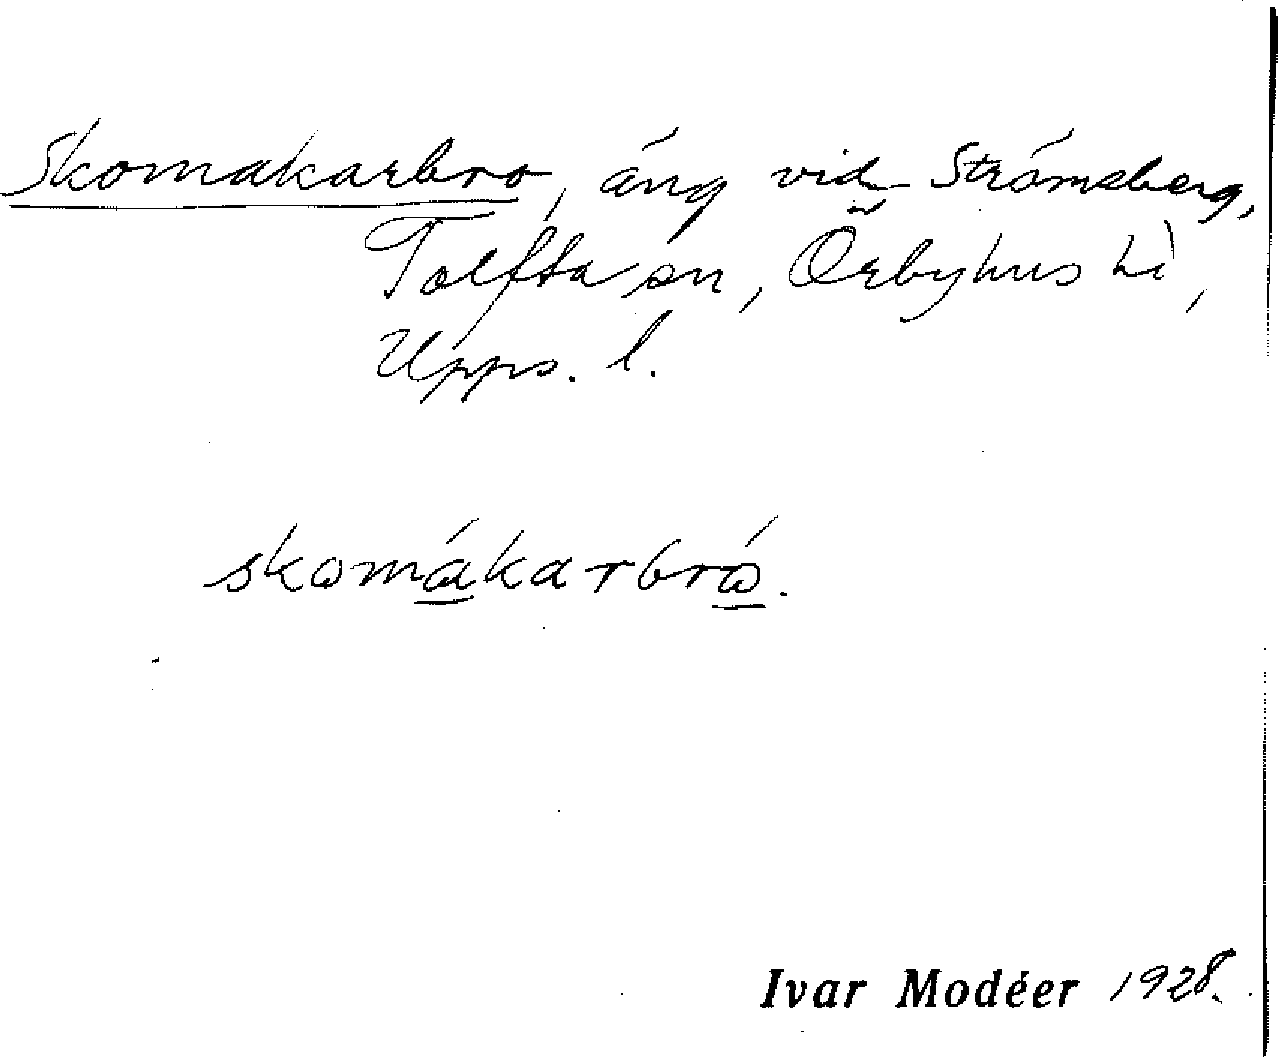 Skomakarbro, äng vid Strömsberg,
Tolfta sn, Örbyhus hd,
Upps. l.
skomákarbró.
Ivar Modéer 1928.